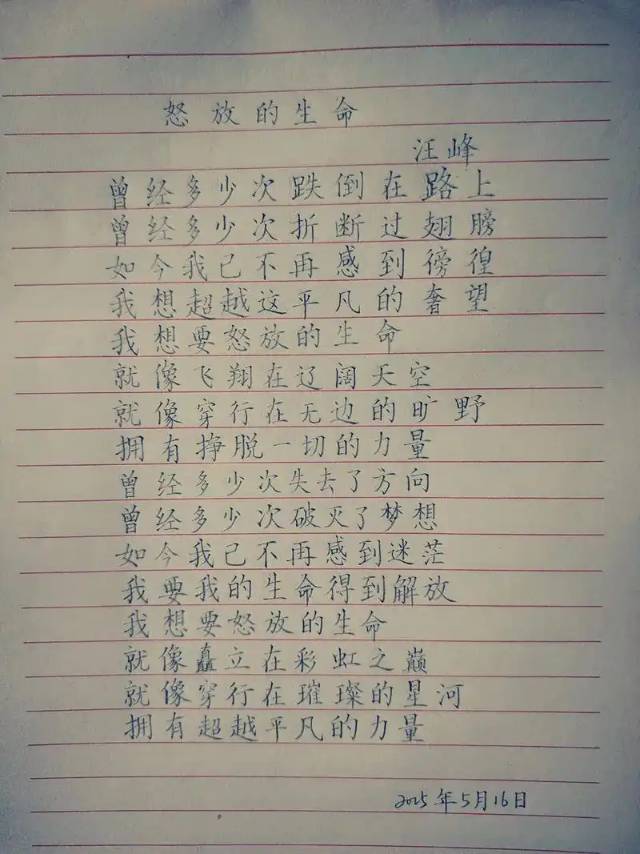 怒放的生命
汪峰
曾经多少次跌倒在路上
曾经多少次折断过翅膀
如今我已不再感到彷徨
我想超越这平凡的奢望
我想要怒放的生命
就像飞翔在辽阔天空
就像穿行在无边的旷野
拥有挣脱一切的力量
曾经多少次失去了方向
曾经多少次破灭了梦想
如今我已不再感到迷茫
我要我的生命得到解放
我想要怒放的生命
就像矗立在彩虹之巅
就像穿行在璀璨的星河
拥有超越平凡的力量
2025年5月16日